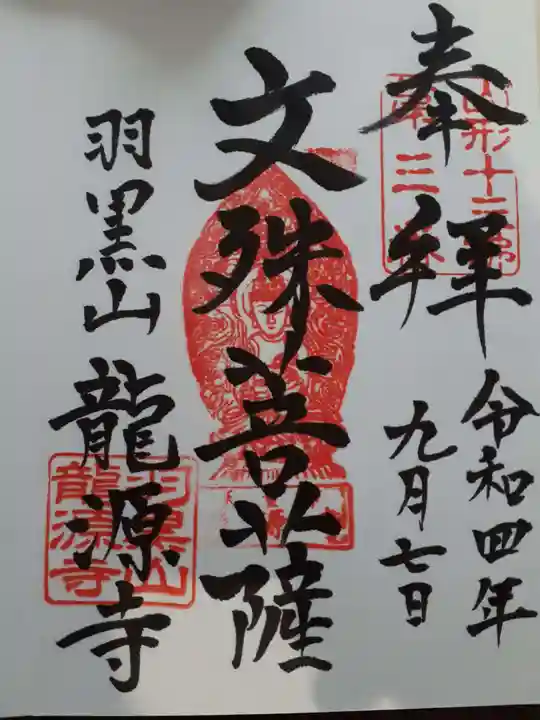 奉拝
山形十三佛
第三番
令和四年
九月七日
文殊菩薩
羽黒山龍源寺
羽黒山
龍源寺